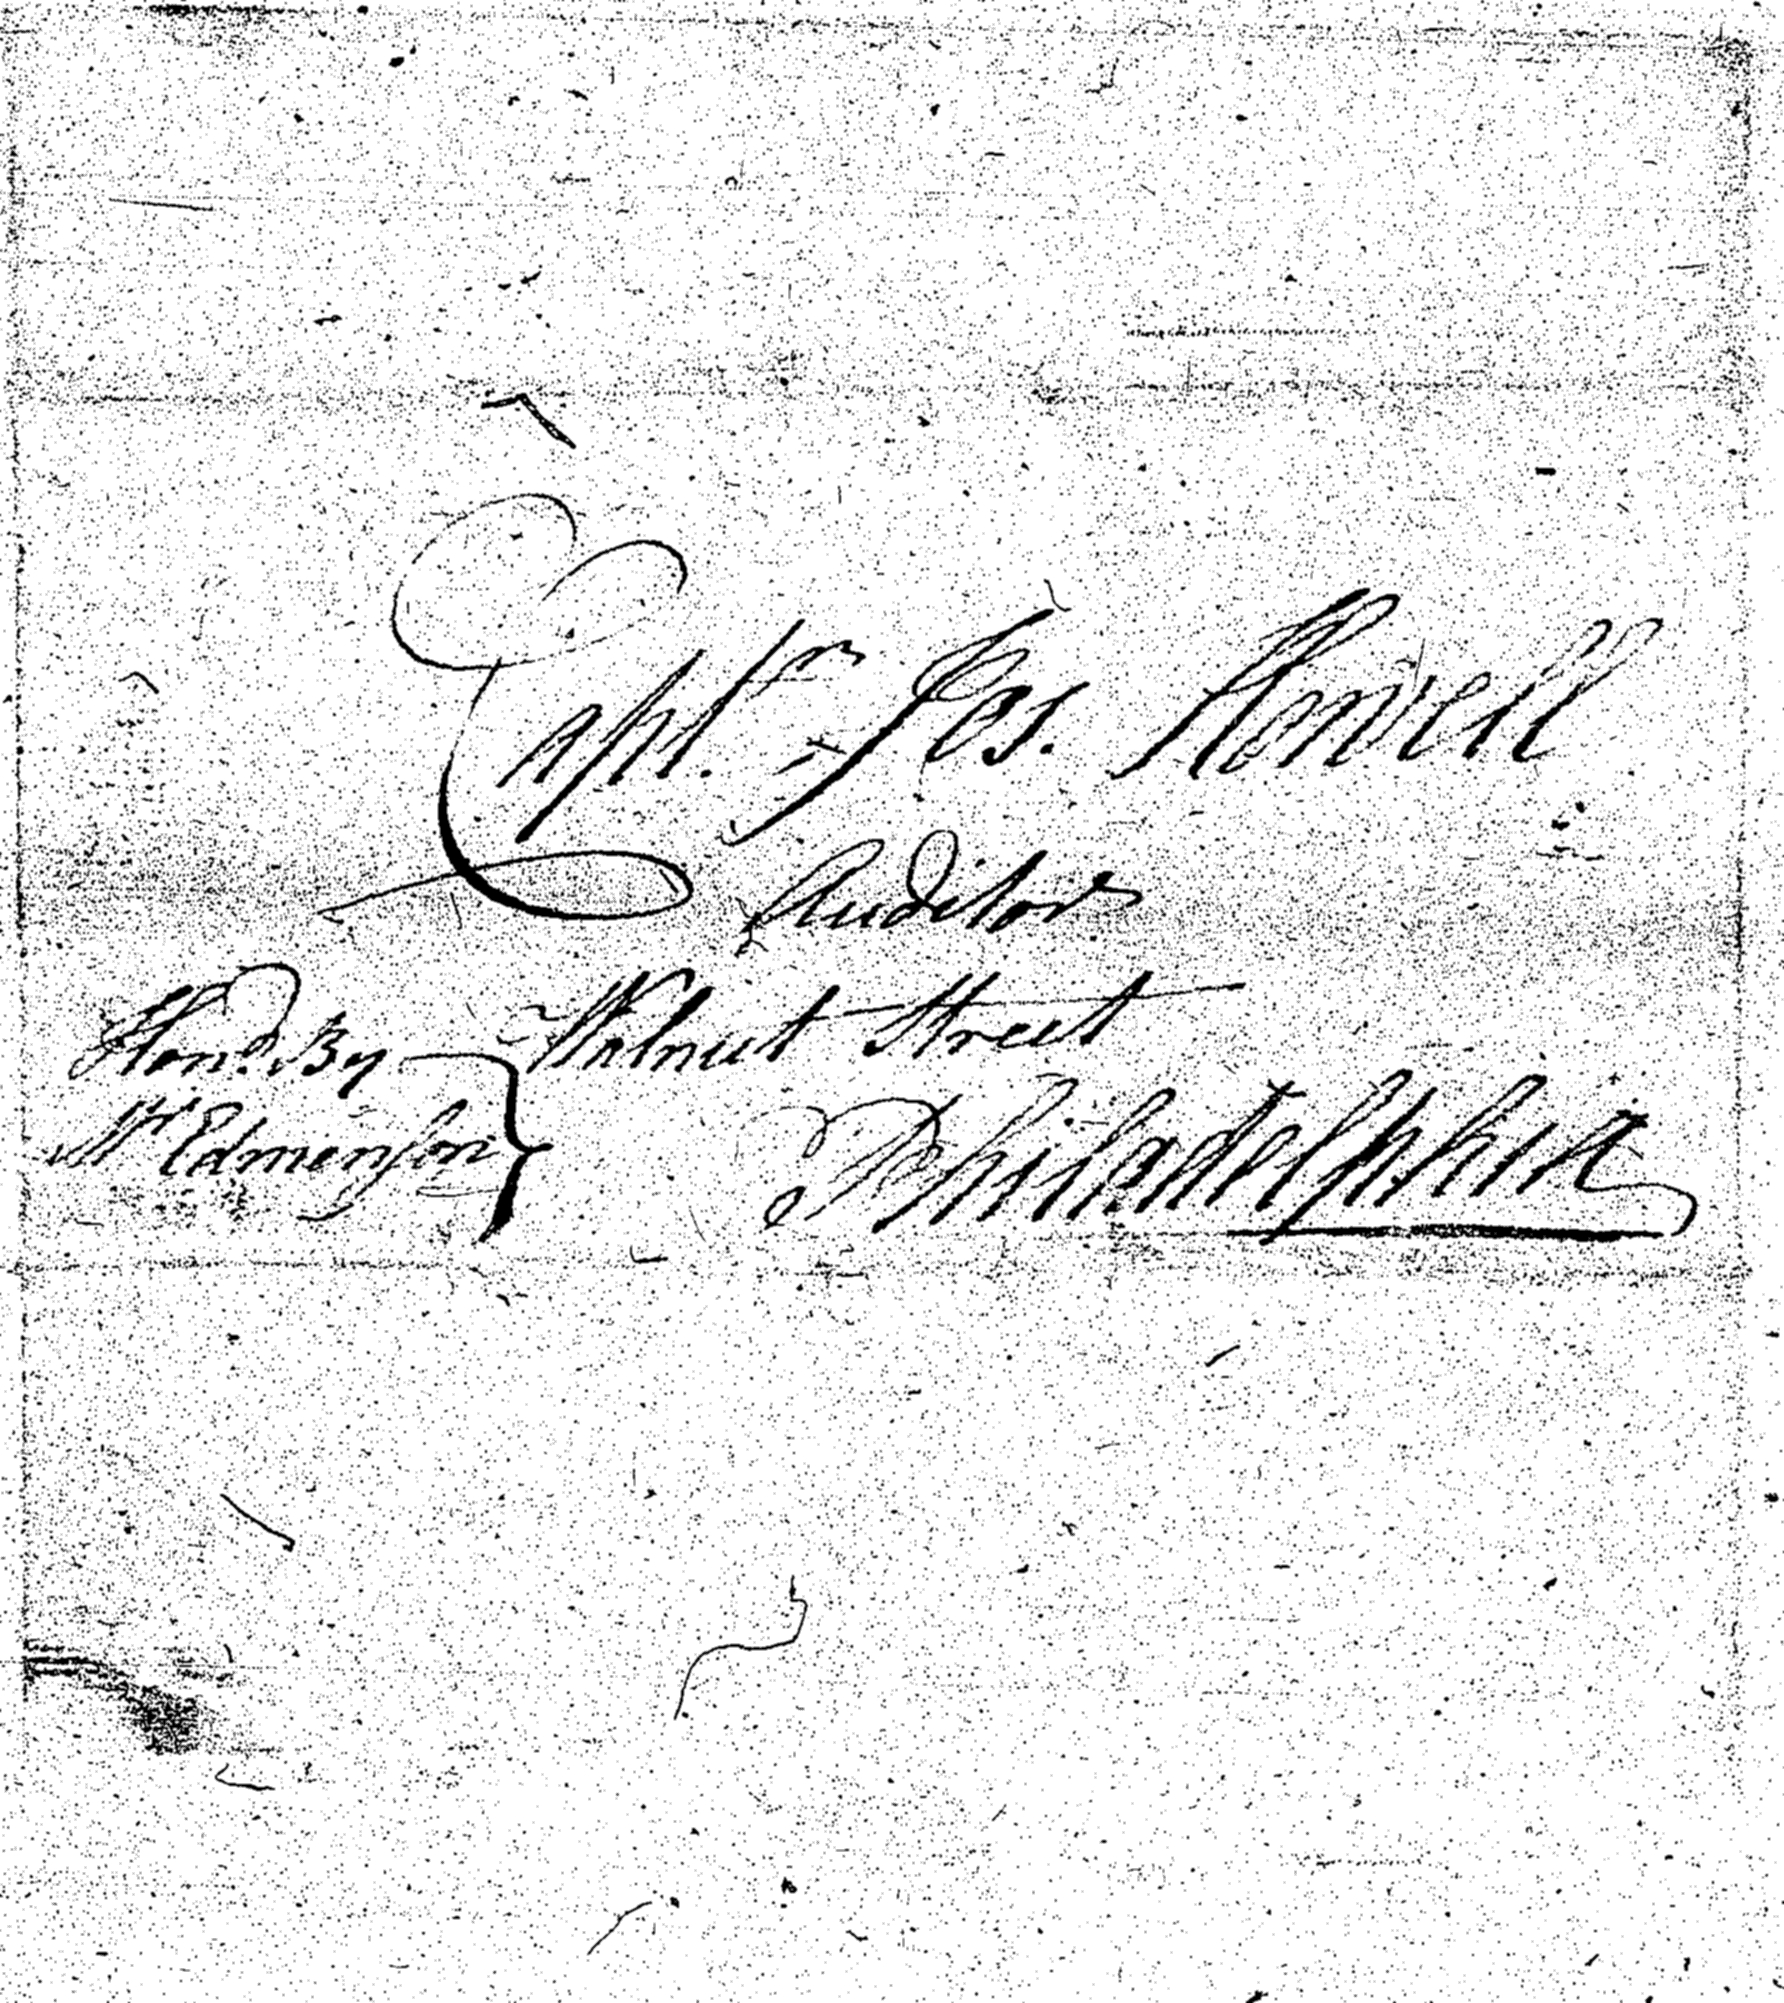 Capt. Jos. Howell
Auditor
Walnut Street
Philadelphia
Hond. By
Mr Edmenson